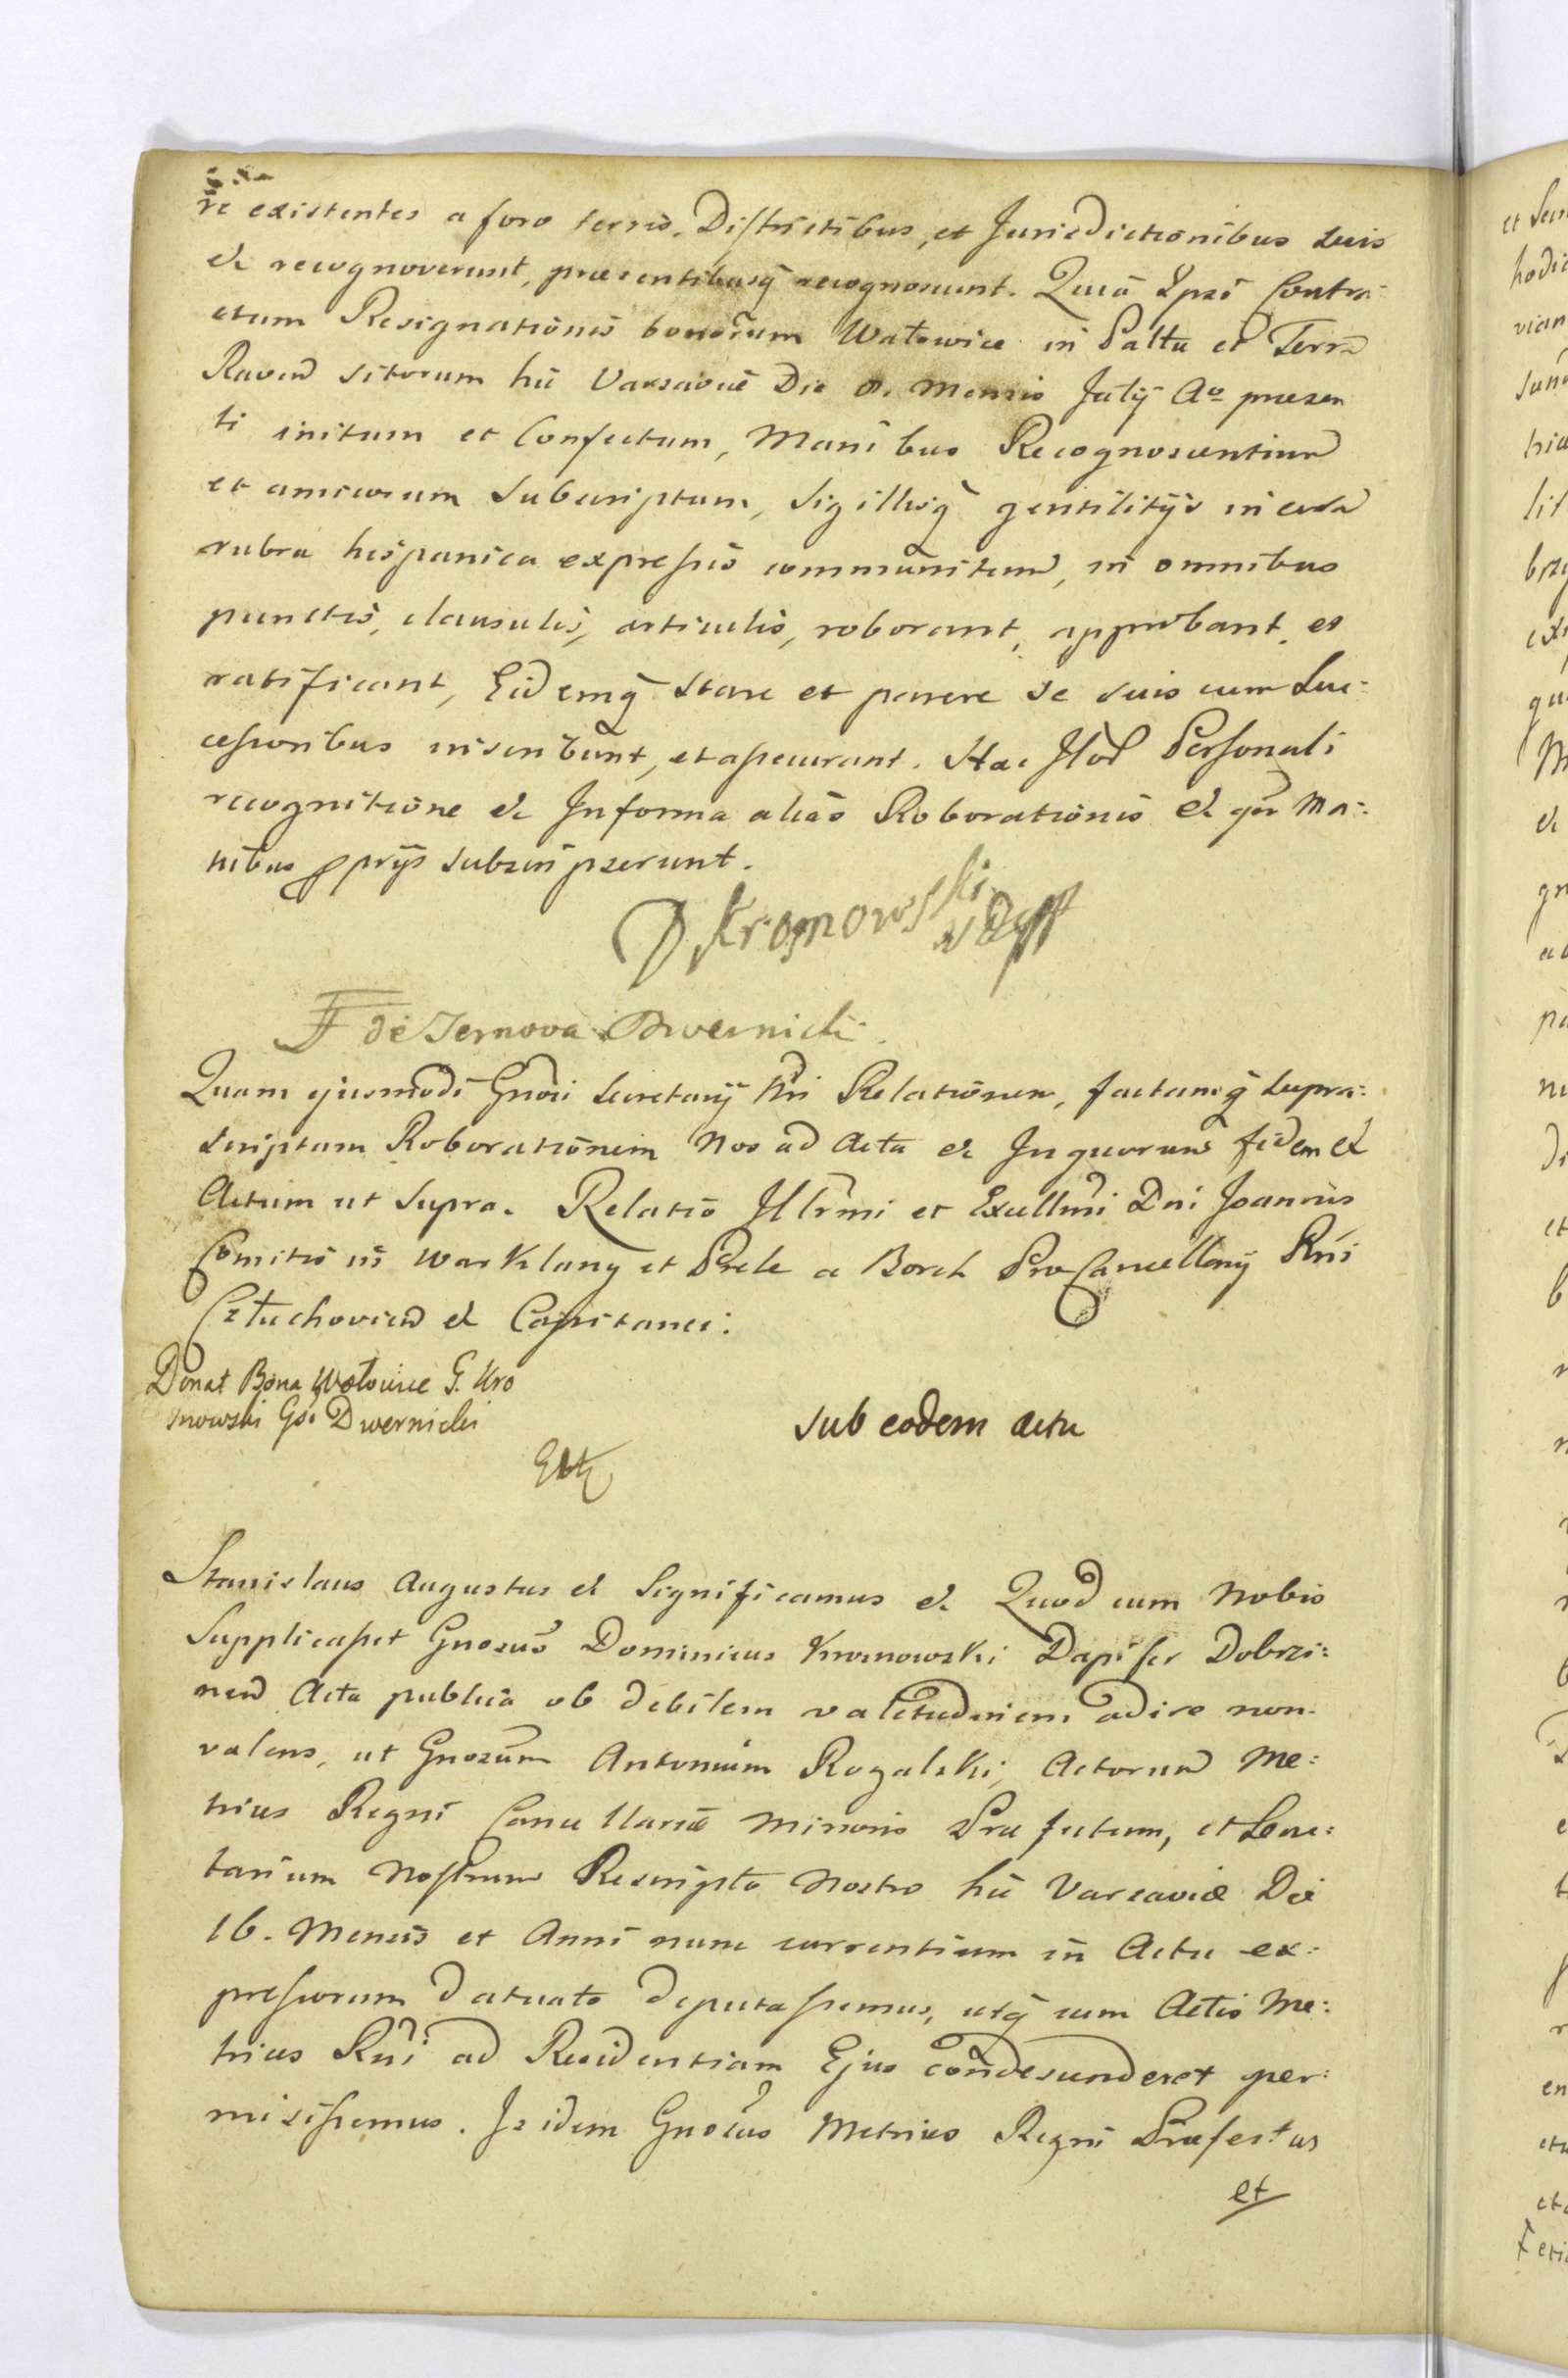 re existentes a foro terris, Districtibus, et Jurisdictionibus suis
et recognoverunt, praesentibusq̃ recognoscunt. Quia Ipsi Contra-
ctum Resignationis bonorum Watowice in Paltu et Terra
Raven sitorum hic Varsaviae Die 8. Mensis Julij Ao praesen
ti initum et Confectum, Manibus Recognoscentium
et amicorum Subscriptum, Sigillisq̃ gentilitijs in cera
rubra hispanica expressis communitum, in omnibus
punctis, clausulis, articulis, roborant, approbant, et
ratificant, Eidemq̃ Stare et parere se suis cum Suc:
cessoribus inscribunt, et assecurant. Hac Personali
recognitione et Informa alias Roborationis et qr Ma:
nibus pprijs Subscripserunt.
D. Kromowski
F de Ternova Dwernicki
Quam ejusmodi Gnosi Secretarij Nri Relationem, factamq̃ Supra:
scriptam Roborationem Nos ad Acta et In quorum fidem et
Actum ut Supra. Relatio Illrmi et Excellmi Dni Joannis
Comitis in Warklany et Prele a Borch ProCancellarij Rni
Człuchovien et Capitanei:
Donat Bona Wołowice G. Kro
mowski Gso Dwernicki
Sub eodem actu
Stanislaus Augustus et Significamus et Quod cum Nobis
Supplicasset Gnosus Dominicus Kromowski Dapifer Dobrzi:
nen Acta publica ob debilem valetudinem adire non
valens, ut Gnosum Antonium Rogalski, Actorum Me:
trices Regni Cancellariae Minoris Praefectum, et Secre:
tarium Nostrum Rescripto Nostro hic Varsaviae Die
16. Mensis et Anni nunc currentium in Actu ex:
pressorum datuato deputassemus, utq̃ cum Actis Me:
trices Rni ad Residentiam Ejus condescenderet per:
misissemus. Is idem Gnosus Metrices Regni Praefectus
et